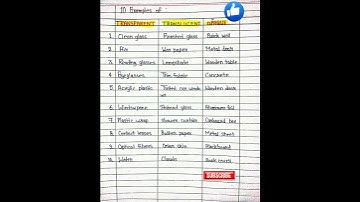 10 Examples of :
TRANSPARENT TRANSLUCENT OPAQUE
1. Clean glass Frosted glass Brick wall
2. Air Wax paper Metal door
3. Reading glasses Lampshade Wooden table
4. Eyeglasses Thin fabric Concrete
5. Acrylic plastic Tinted car window Wooden door
6. Windowpane Stained glass Aluminum foil
7. Plastic wrap Shower curtain Cardboard box
8. Contact lenses Butter paper Metal sheet
9. Optical fibers Onion skin Blackboard
10. Water Clouds Book covers
SUBSCRIBE